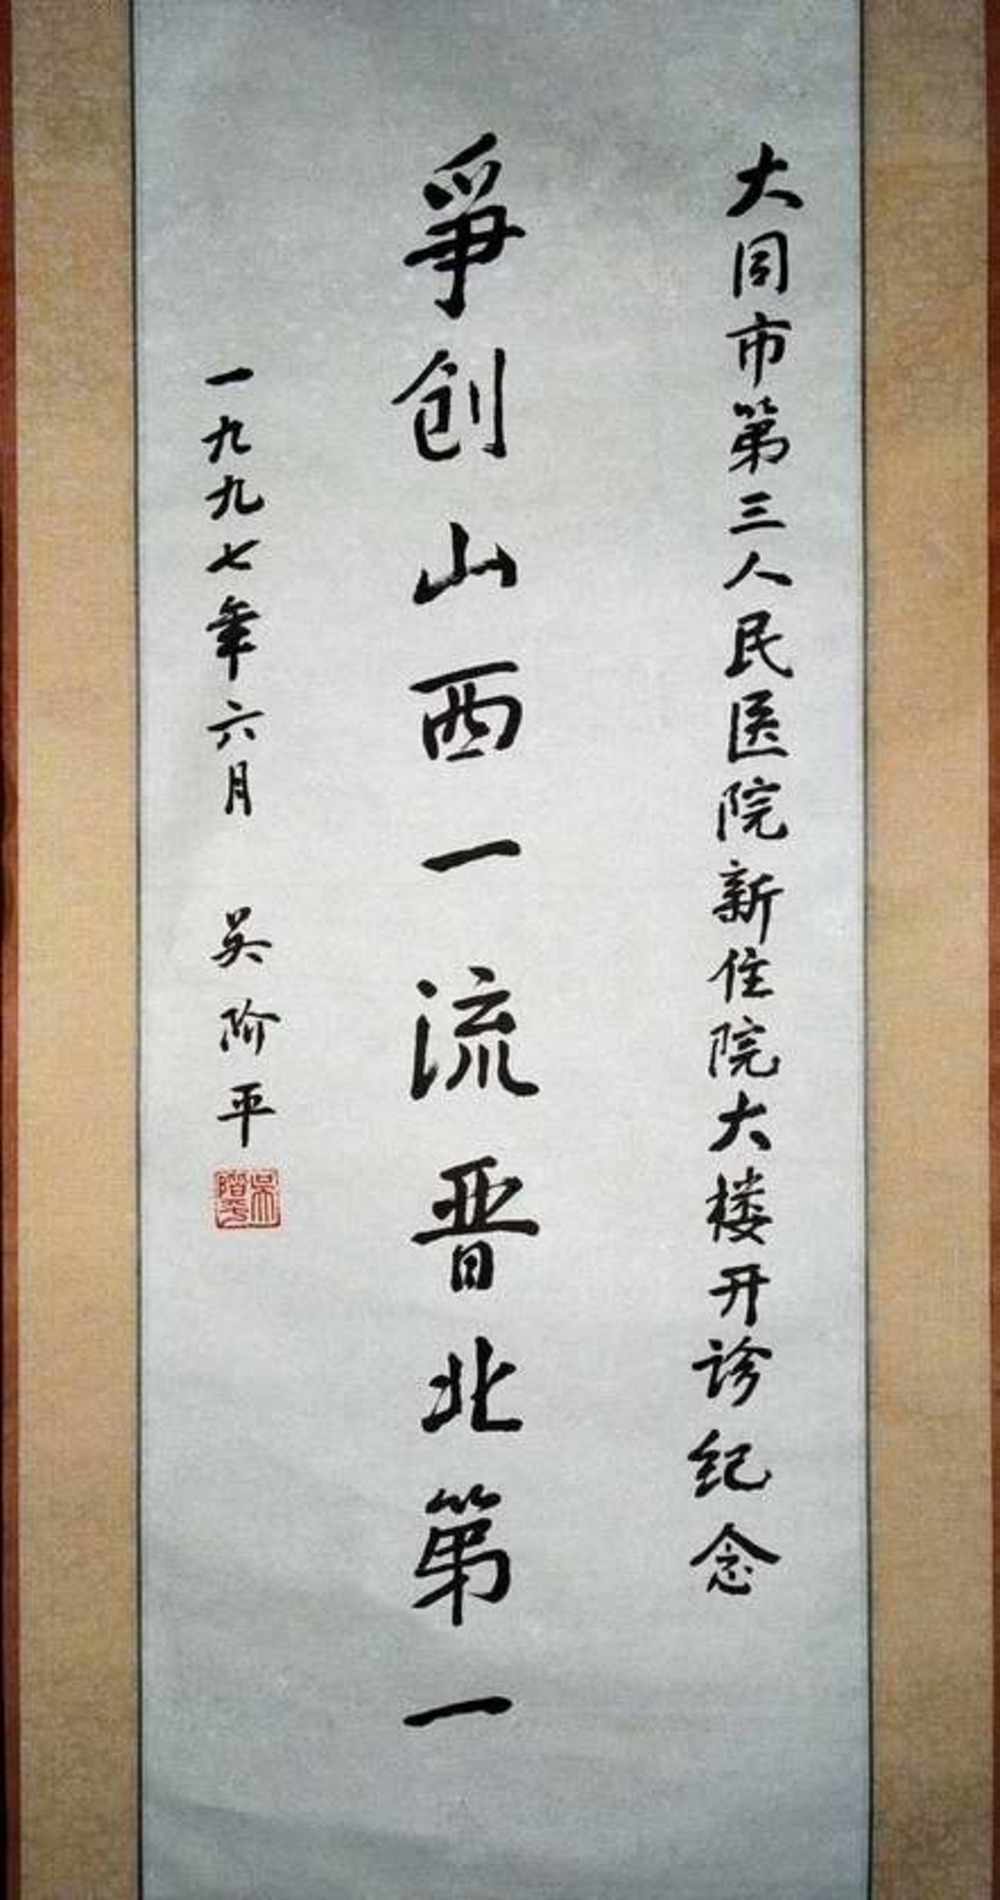 大同市第三人民医院新住院大楼开诊纪念
爭创山西一流晋北第一
一九九七年六月 吴阶平
吴阶平